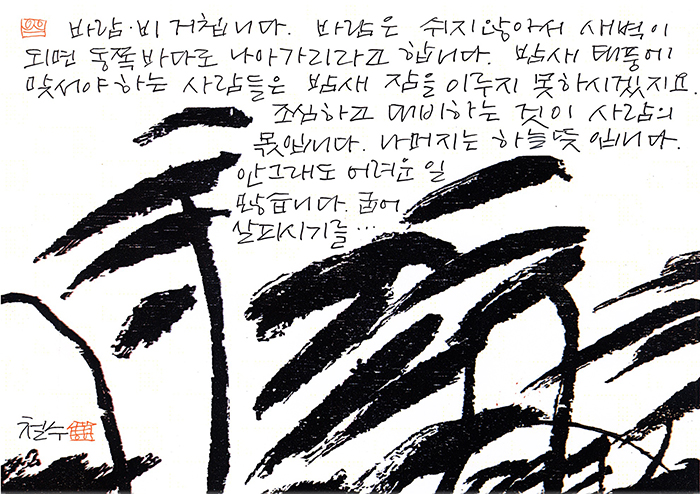 바람·비 거칩니다. 바람은 쉬지않아서 새벽이
되면 동쪽바다로 나아가리라고 합니다. 밤새 태풍에
맞서야 하는 사람들은 밤새 잠을 이루지 못하시겠지요.
조심하고 대비하는 것이 사람의
몫입니다. 나머지는 하늘뜻입니다.
안그래도 어려운 일
많습니다. 굽어
살피시기를…
철수